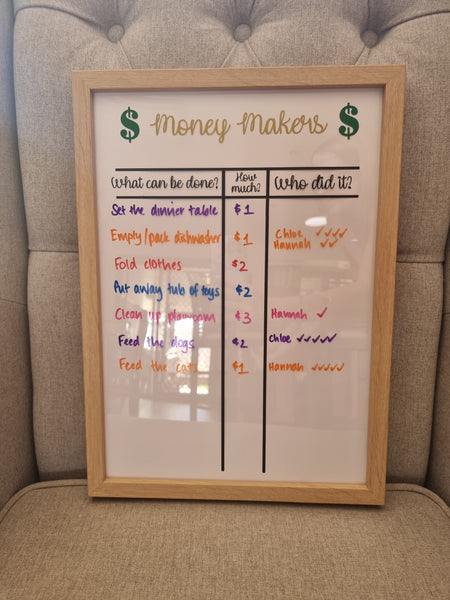 $ Money Makers $
What can be done? How much? Who did it?
Set the dinner table $1
Empty/pack dishwasher $1 Chloe ✓✓✓✓
Hannah ✓✓
Fold clothes $2
Put away tub of toys $2
Clean up playroom $3 Hannah ✓
Feed the dogs $2 Chloe ✓✓✓✓✓
Feed the cat $1 Hannah ✓✓✓✓✓